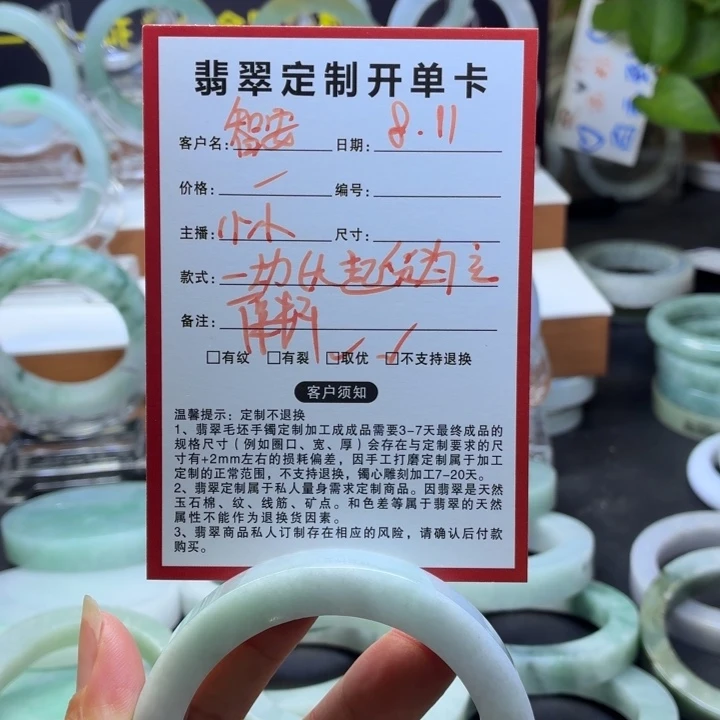 翡翠定制开单卡
客户名：智安 日期：8.11
价格：一 编号：
主播：小水 尺寸：
款式：一切以起货为主
备注：
□有纹 □有裂 □取优 □不支持退换
客户须知
温馨提示：定制不退换
1、翡翠毛坯手镯定制加工成成品需要3-7天最终成品的
规格尺寸（例如圈口、宽、厚）会存在与定制要求的尺
寸有+2mm左右的损耗偏差，因手工打磨定制属于加工
定制的正常范围，不支持退换，镯心雕刻加工7-20天。
2、翡翠定制属于私人量身需求定制商品。因翡翠是天然
玉石棉、纹、线筋、矿点。和色差等属于翡翠的天然
属性不能作为退换货因素。
3、翡翠商品私人订制存在相应的风险，请确认后付款
购买。